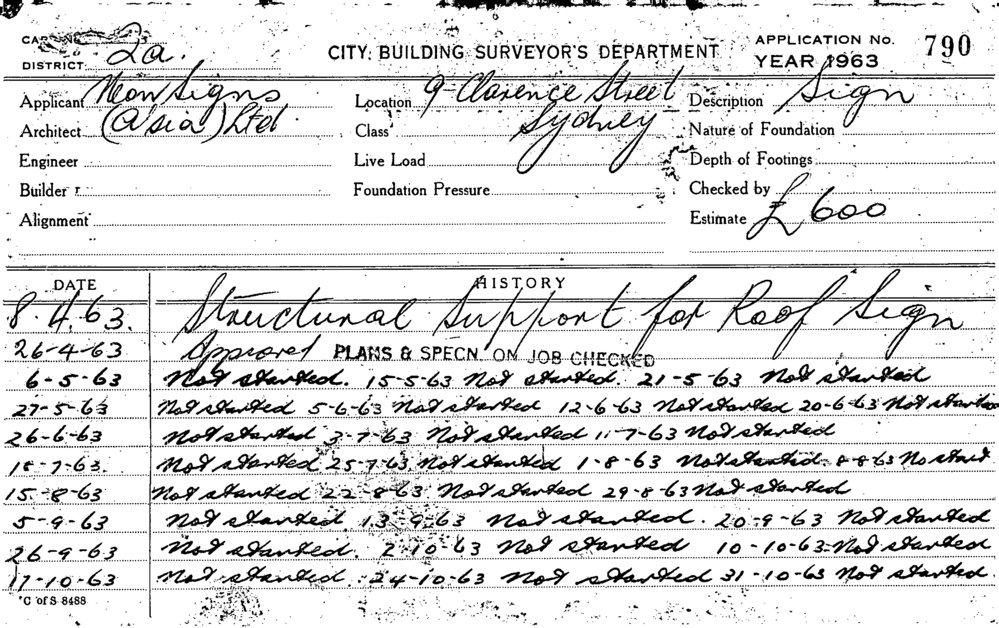 CITY BUILDING SURVEYOR'S DEPARTMENT
APPLICATION No. 790
DISTRICT 2a.
YEAR 1963
Applicant Neon Signs
Location 9 Clarence Street
Description Sign
Architect (Asia) Ltd.
Class Sydney
Nature of Foundation
Engineer
Live Load
Depth of Footings
Builder
Foundation Pressure
Checked by
Alignment
Estimate £600
DATE HISTORY
8.4.63. Structural Support for Roof Sign
26-4-63 Approved PLANS & SPECN. ON JOB CHECKED
6-5-63 Not started. 15-5-63 Not started. 21-5-63 Not started
27-5-63 Not started 5-6-63 Not started 12-6-63 Not started 20-6-63 Not started
26-6-63 Not started 3-7-63 Not started 11-7-63 Not started
18-7-63. Not started 25-7-63. Not started 1-8-63 Not started. 8-8-63 No start
15-8-63 Not started 22-8-63 Not started 29-8-63 Not started
5-9-63 Not started. 13-9-63 Not started. 20-9-63 Not started
26-9-63 Not started. 2-10-63 Not started 10-10-63 Not started
17-10-63 Not started. 24-10-63 Not started 31-10-63 Not started.
C of S 8488